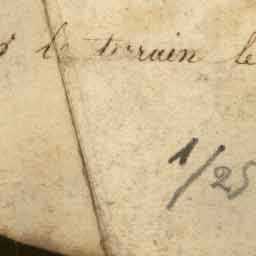 le terrain le
1/25